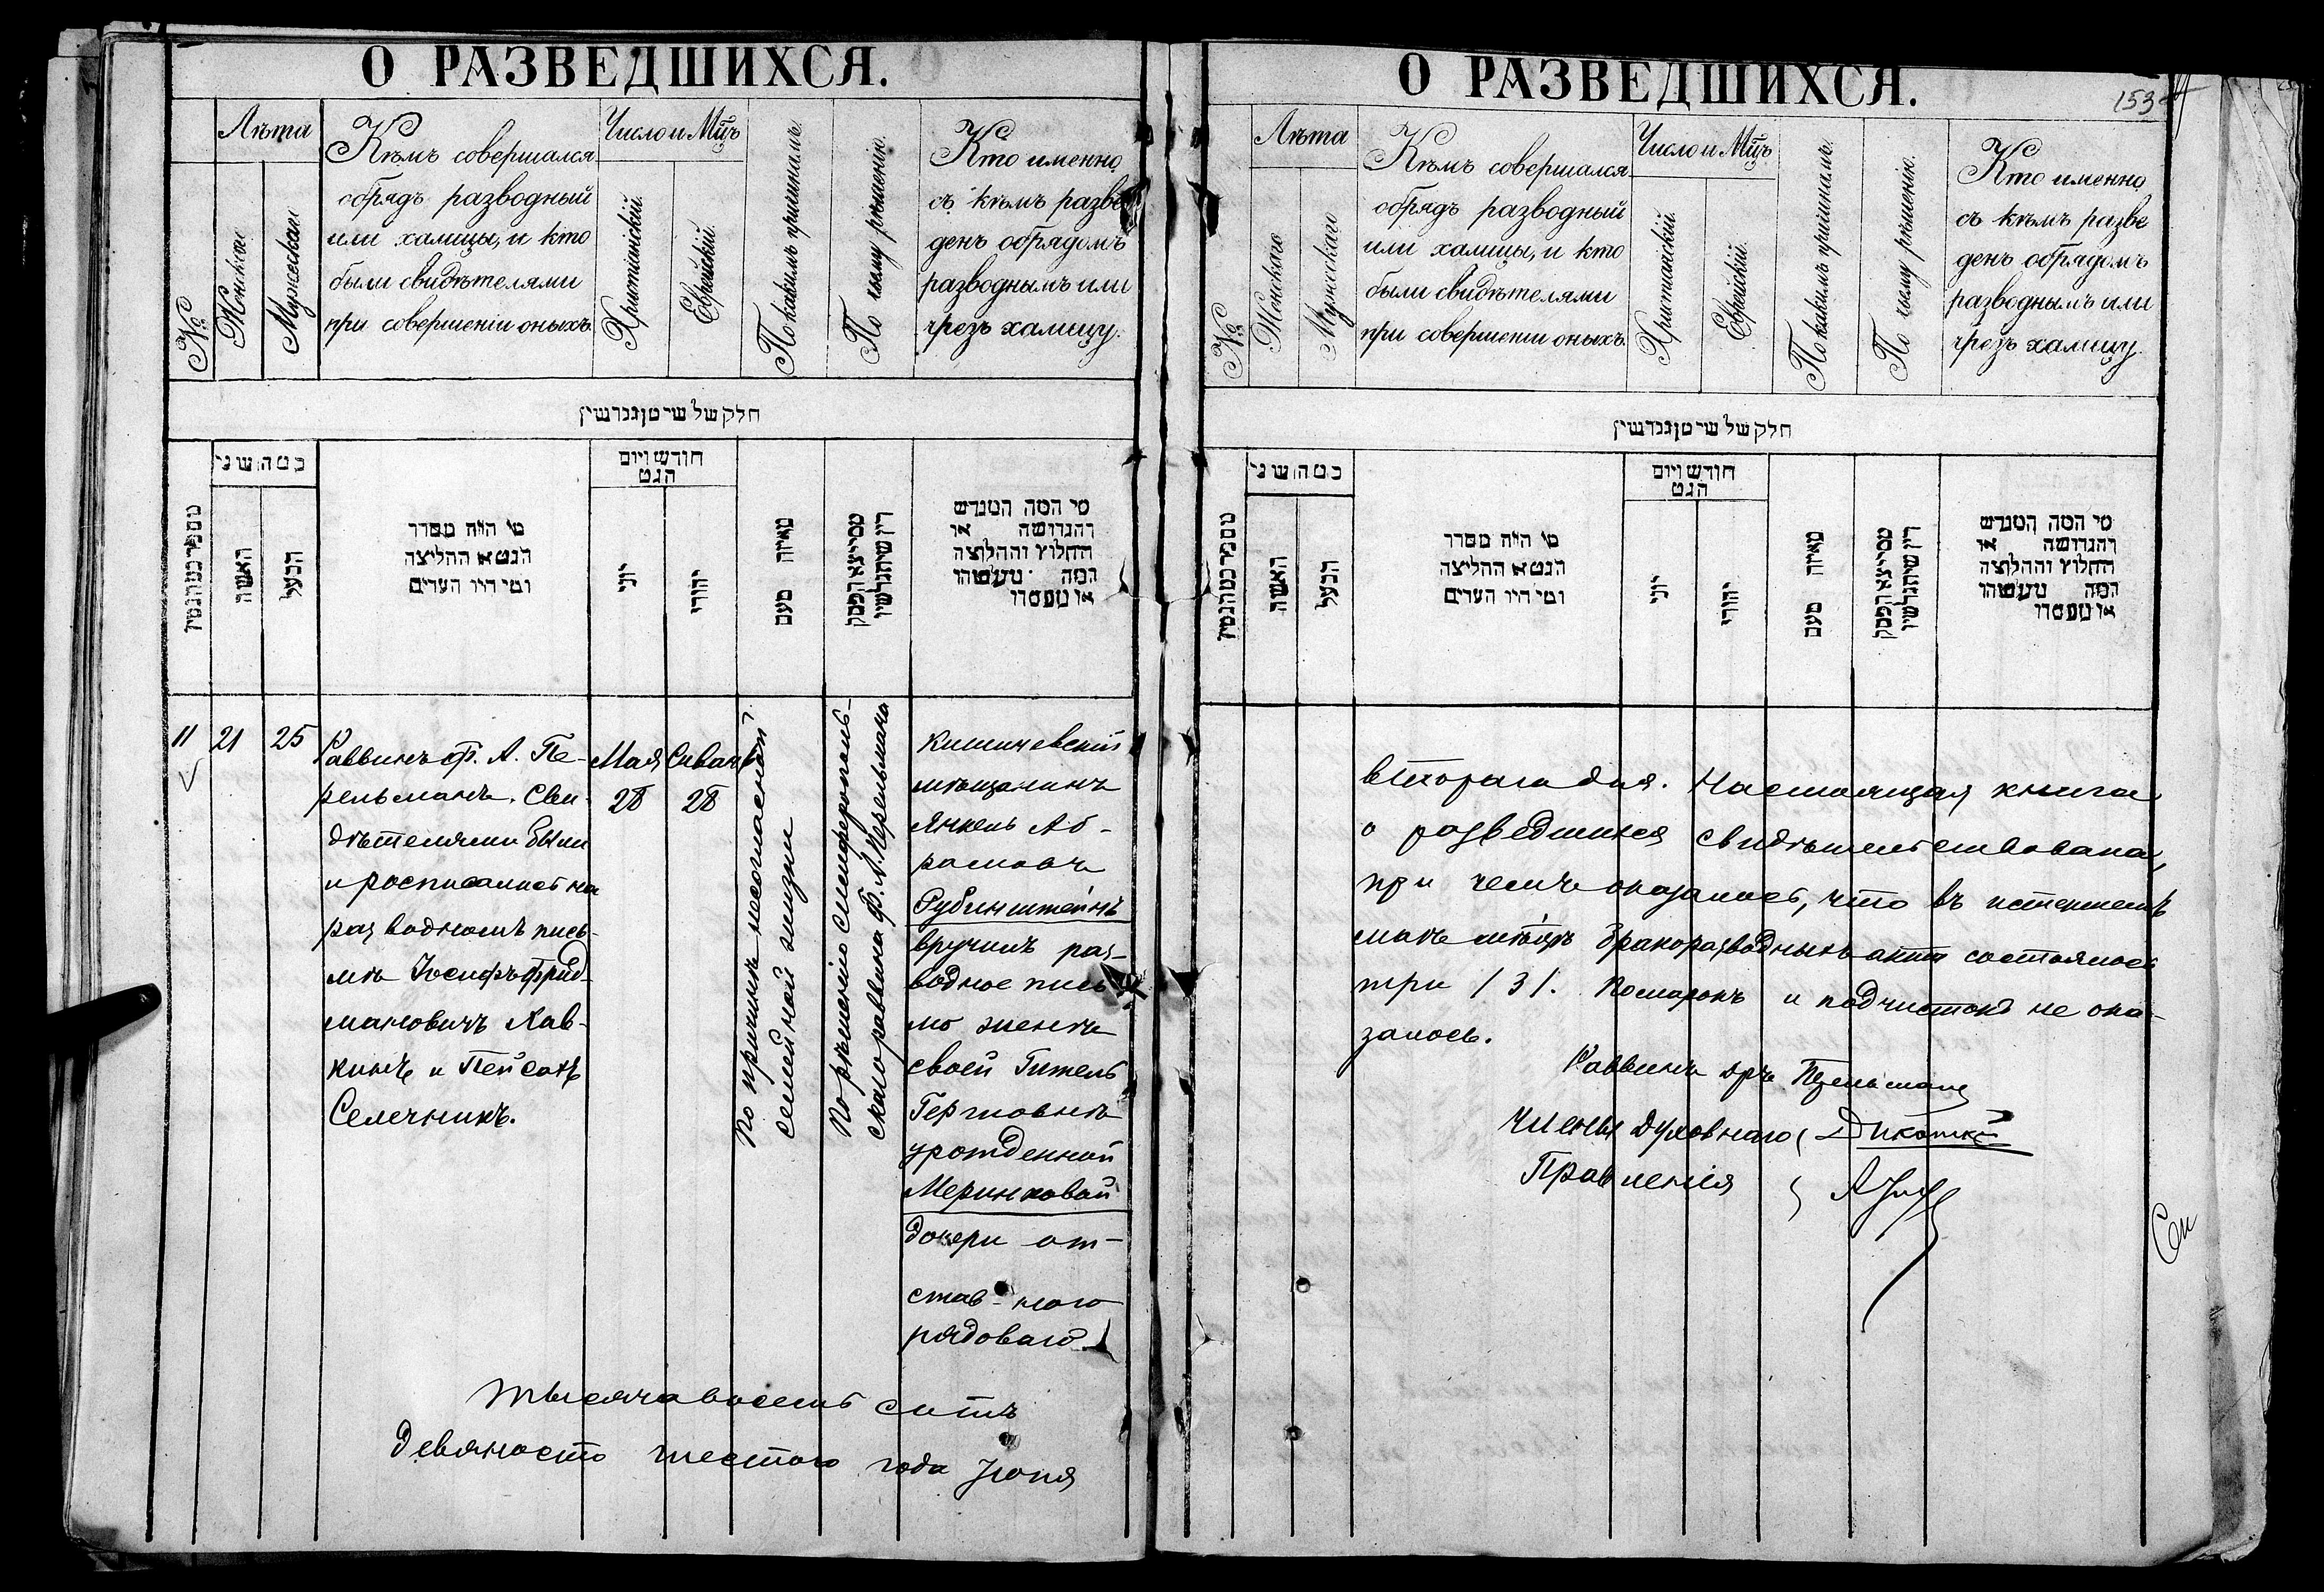 О РАЗВЕДШИХСЯ.
№
Лѣта
Женская
Мужеская
Кѣмъ совершался
обрядъ разводный
или халицы, и кто
были свидѣтелями
при совершеніи оныхъ.
Число и Мц̃ъ
Христіанскій.
Еврейскій.
По какимъ причинамъ.
По чьему рѣшенію.
Кто именно,
съ кѣмъ разве
денъ обрядомъ
разводнымъ или
чрезъ халицу.
חלק של שיטן גרושין
האשה
הבעל
מי היה מסדר
הגט או החליצה
ומי היו העדים
חודש ויום
הגט
יוני
יהודי
מאיזה טעם
מי המה המגרש
והגרושה או
החלוץ והחלוצה
11
21
25
Раввинъ Ф. А. Пе-
рельманъ. Сви-
дѣтелями были
и росписались на
разводномъ пись-
мѣ Іосифъ Фрид-
мановичъ Хав-
кинъ и Пейсахъ
Селечникъ.
Мая
28
Сиванъ
28
По причинѣ несогласной
семейной жизни
По рѣшенію Симферополь-
скаго раввина Ф. А. Перельмана
Кишиневскій
мѣщанинъ
Янкель Аб-
рамовъ
Рубинштейнъ
вручилъ раз-
водное пись
мо женѣ
своей Гитель
Гершовнѣ
урожденной
Меринковой
дочери от-
став-ного
рядового
тысяча восемь сотъ
девяносто шестого года Іюня
О РАЗВЕДШИХСЯ.
153
№
Лѣта
Женскаго
Мужскаго
Кѣмъ совершался
обрядъ разводный
или халицы, и кто
были свидѣтелями
при совершеніи оныхъ.
Число и Мц̃ъ
Христіанскій.
Еврейскій.
По какимъ причинамъ.
По чьему рѣшенію.
Кто именно,
съ кѣмъ разве
денъ обрядомъ
разводнымъ или
чрезъ халицу.
חלק של שיטן גרושין
האשה
הבעל
מי היה מסדר
הגט או החליצה
ומי היו העדים
חודש ויום
הגט
יוני
יהודי
מאיזה טעם
מי המה המגרש
והגרושה או
החלוץ והחלוצה
втораго дня. Настоящая книга
о разведшихся свидѣтельствована,
при чемъ оказалось, что въ истекшемъ
маѣ мѣсяцѣ бракоразводныхъ актъ состоялось
три /3/. Помарокъ и подчистокъ не ока-
залось.
Раввинъ дръ Перельманъ
Члены Духовнаго
Правленія